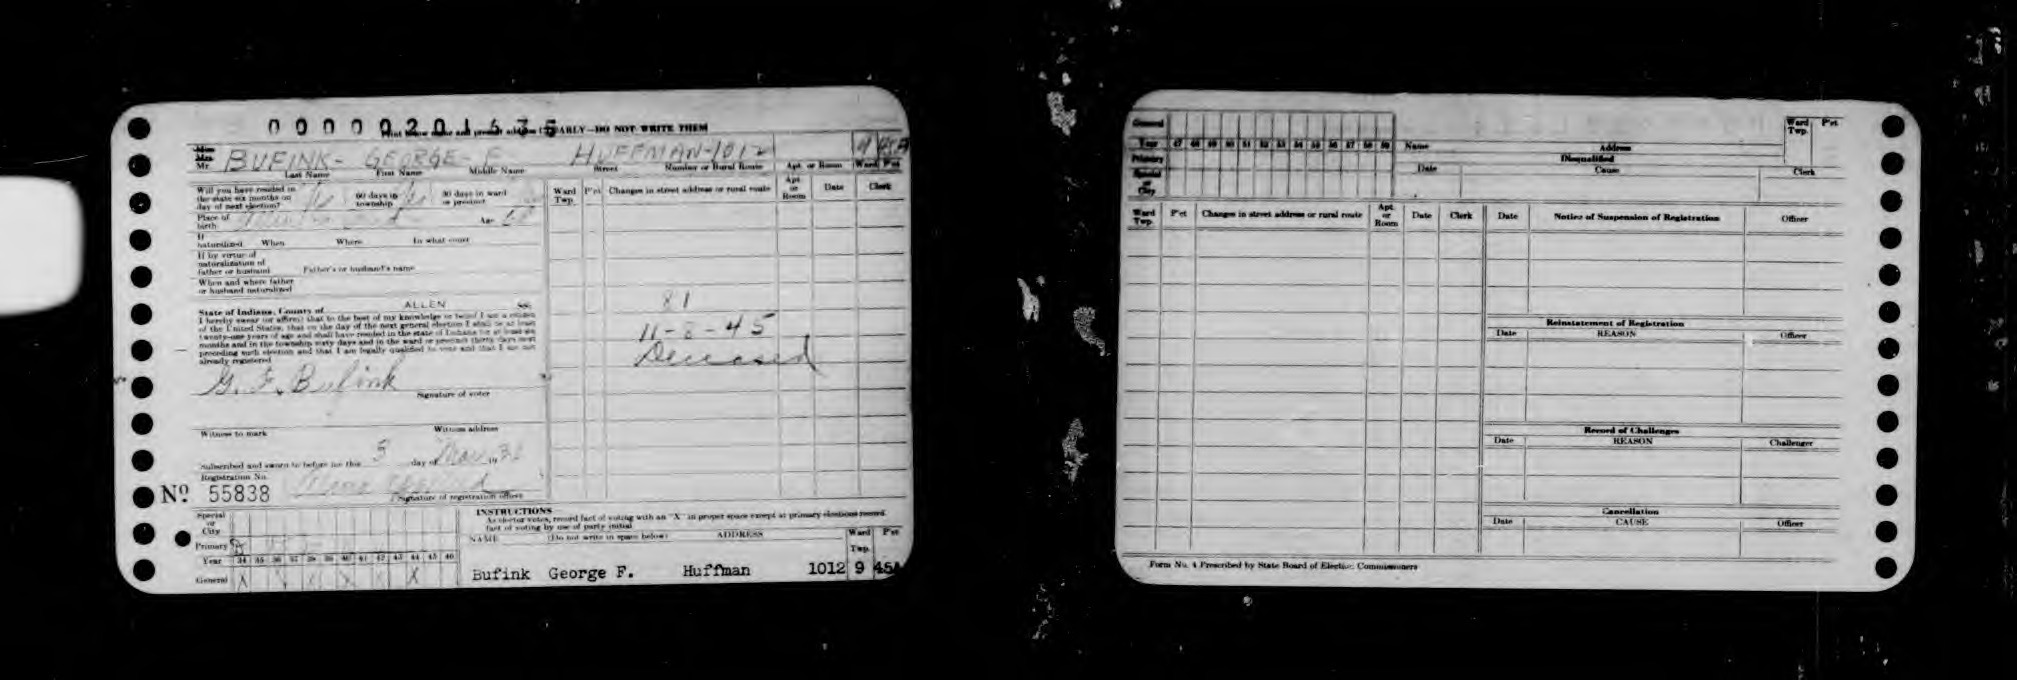 0 0 0 0 0 2 0 1 6 3 5
EARLY—DO NOT WRITE THEM
Miss
Mrs.
Mr. BUFINK- GEORGE- F HUFFMAN-1012 9 45A
Last Name First Name Middle Name Street Number or Rural Route Apt. or Room Ward P'ct
Will you have resided in the state six months on day of next election? 60 days in township 30 days in ward or precinct
Ward Twp. P'ct Changes in street address or rural route Apt. or Room Date Clerk
Place of birth Age
If naturalized When Where In what court
If by virtue of naturalization of father or husband Father's or husband's name
When and where father or husband naturalized
State of Indiana, County of ALLEN SS:
I hereby swear (or affirm) that to the best of my knowledge or belief I am a citizen
of the United States, that on the day of the next general election I shall be at least
twenty-one years of age and shall have resided in the state of Indiana for at least six
months and in the township sixty days and in the ward or precinct thirty days next
preceding such election and that I am legally qualified to vote and that I am not
already registered
81
11-8-45
Deceased
G. F. Bufink
Signature of voter
Witness to mark Witness address
Subscribed and sworn to before me this 5 day of Mar. 19
Registration No.
No. 55838
Signature of registration officer
Special or City
Primary
Year 34 35 36 37 38 39 40 41 42 43 44 45 46
General X X X X X
INSTRUCTIONS
As elector votes, record fact of voting with an "X" in proper space except at primary elections record
fact of voting by use of party initial
NAME (Do not write in space below) ADDRESS Ward Twp. P'ct
Bufink George F. Huffman 1012 9 45A
General
Year 47 48 49 50 51 52 53 54 55 56 57 58 59
Primary
Special or City
Name Address Ward Twp. P'ct
Disqualified
Date Cause Clerk
Ward Twp. P'ct Changes in street address or rural route Apt. or Room Date Clerk
Date Notice of Suspension of Registration Officer
Reinstatement of Registration
Date REASON Officer
Record of Challenges
Date REASON Challenger
Cancellation
Date CAUSE Officer
Form No. 4 Prescribed by State Board of Election Commissioners